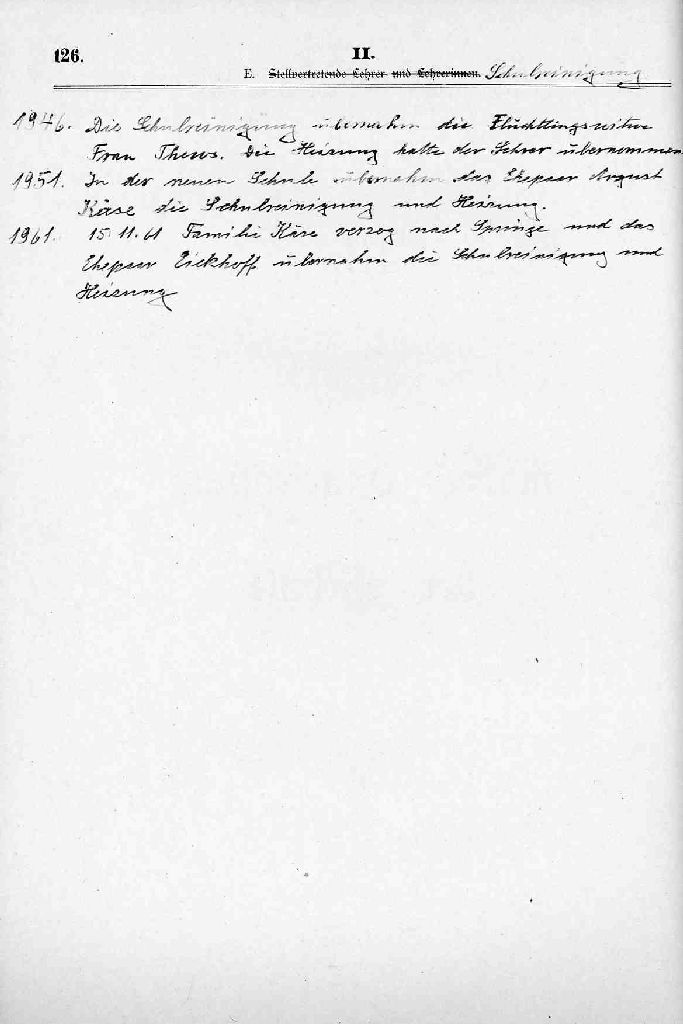 126.
II.
E. Stellvertretende Lehrer und Lehrerinnen. Schulreinigung
1946. Die Schulreinigung übernahm die Flüchtlingswitwe
Frau Thews. Die Heizung hatte der Lehrer übernommen
1951. In der neuen Schule übernahm das Ehepaar August
Käse die Schulreinigung und Heizung.
1961. 15.11.61 Familie Käse verzog nach Springe und das
Ehepaar Eickhoff übernahm die Schulreinigung und
Heizung